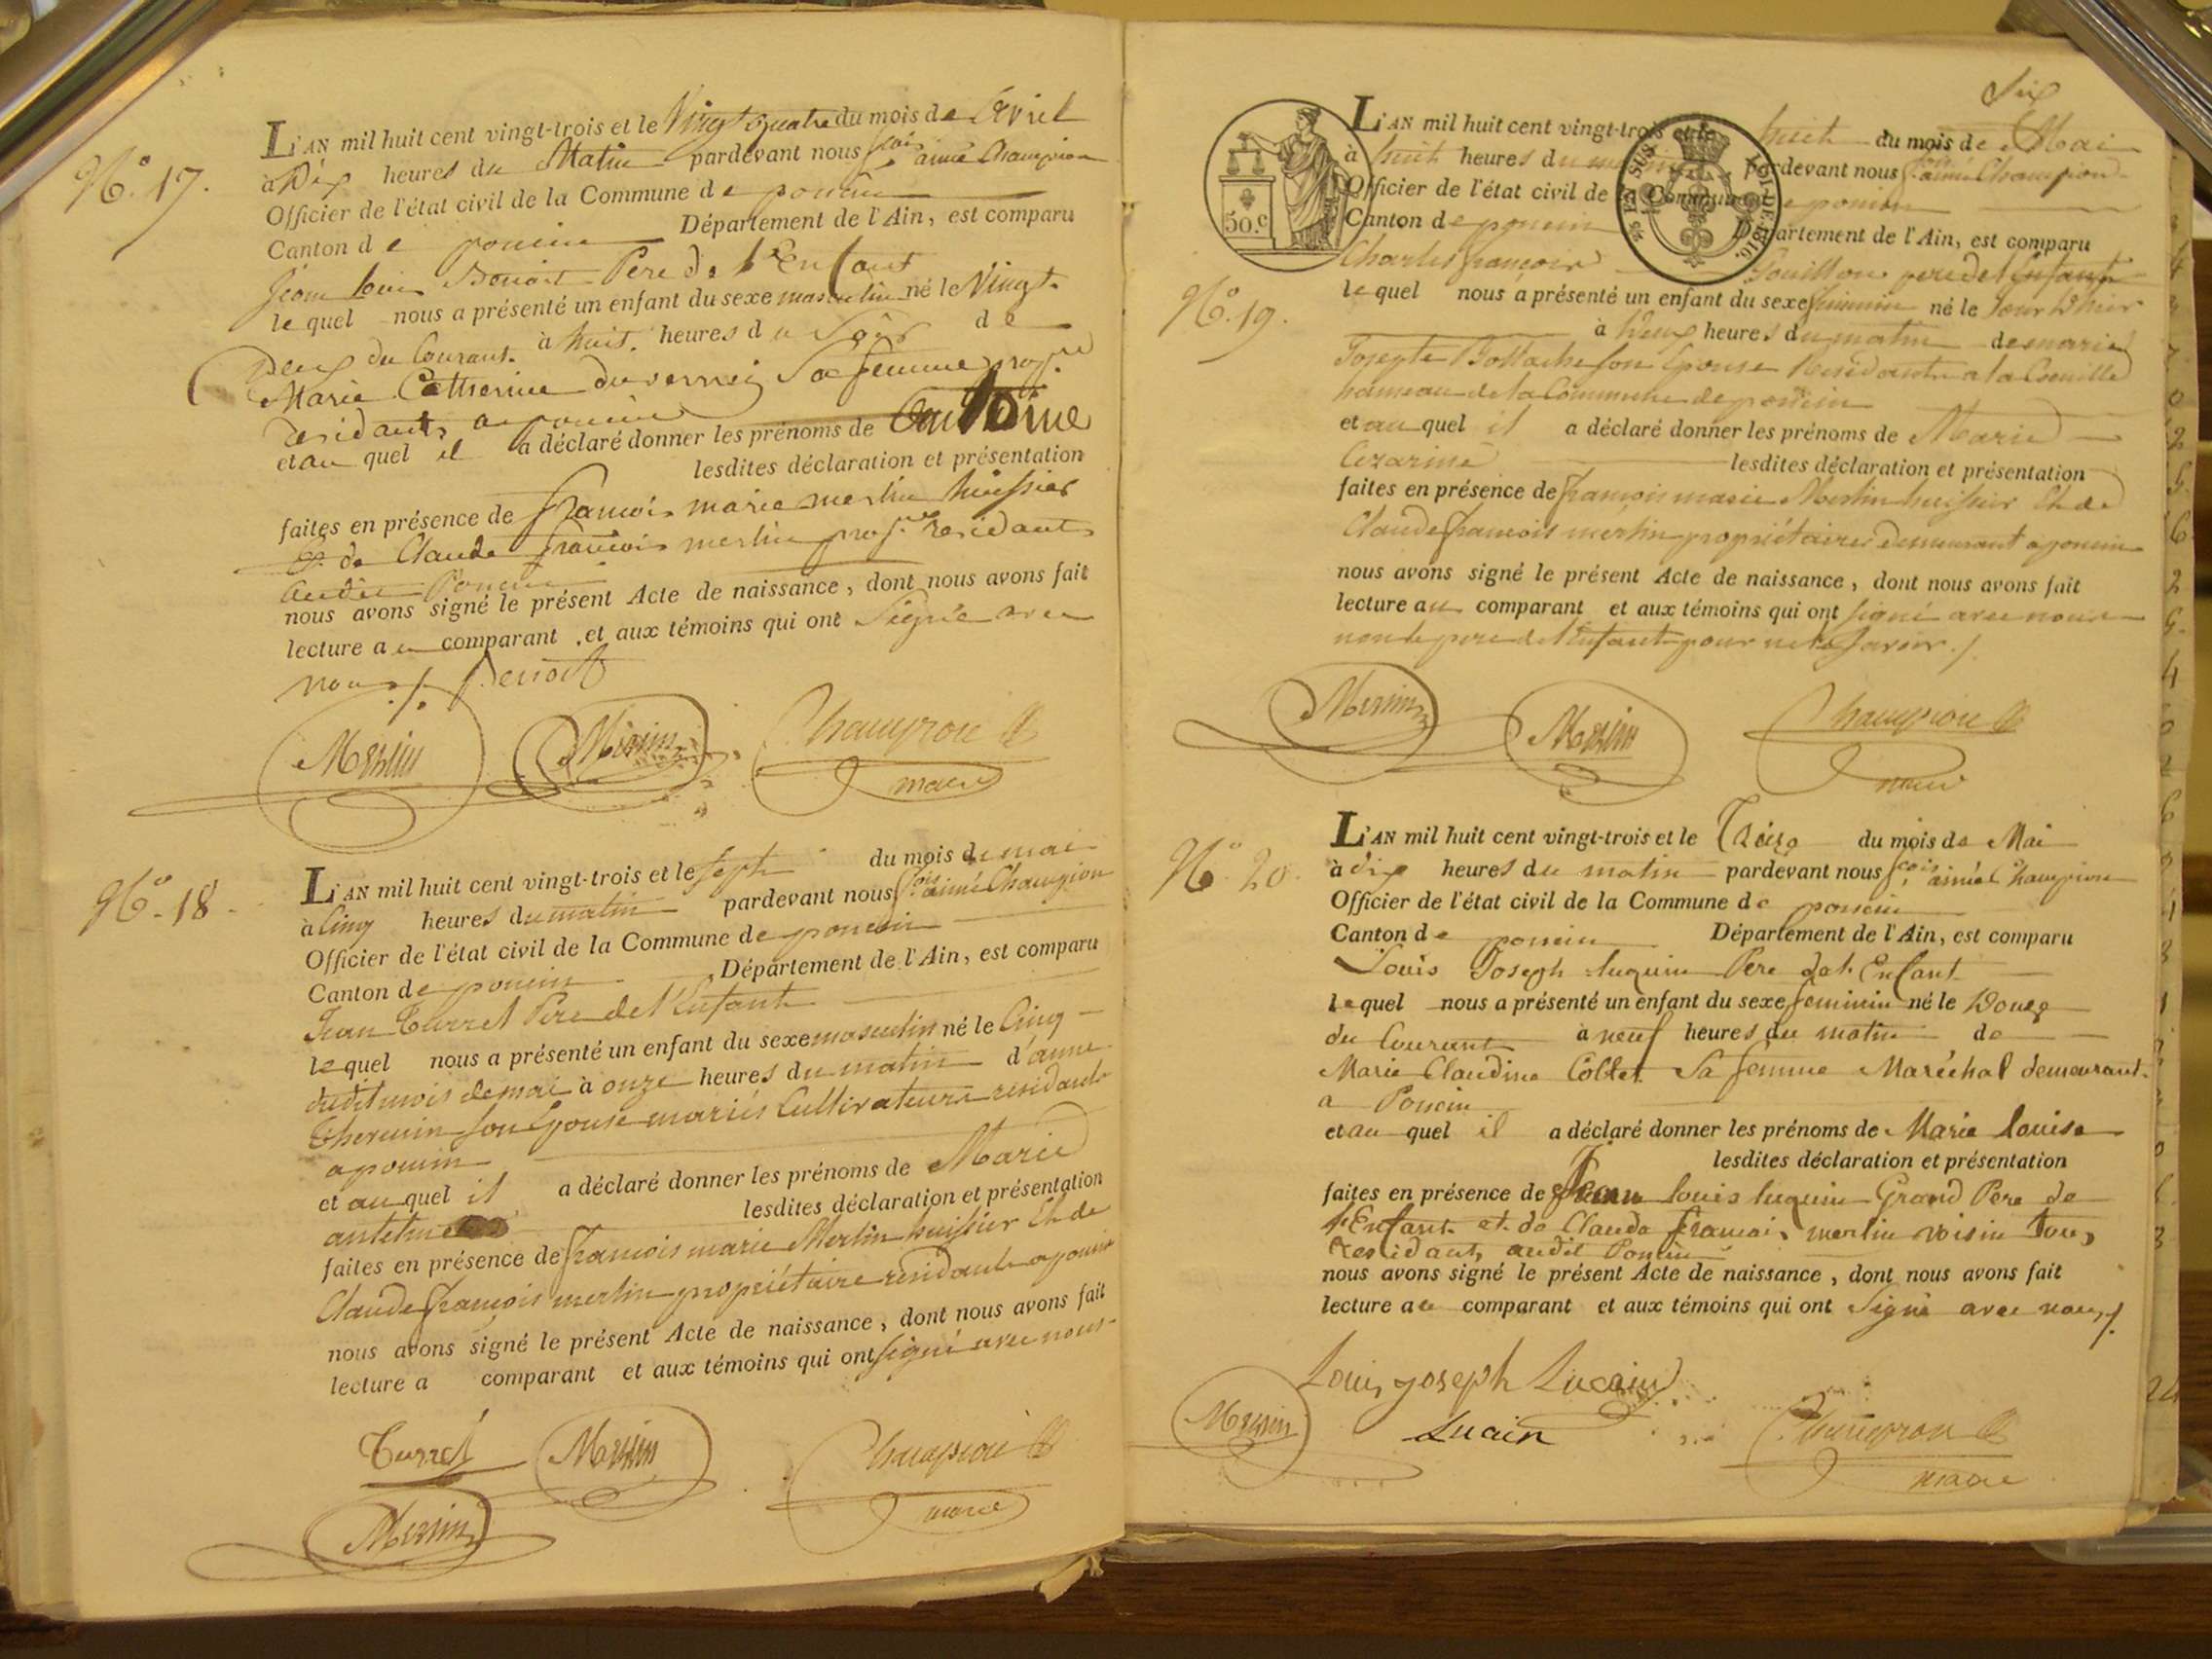 N.o 17.
L'AN mil huit cent vingt-trois et le Vingt quatre du mois de Avril
à Dix heures du Matin pardevant nous fcois aimé Champion
Officier de l'état civil de la Commune de poncin
Canton de poncin Département de l'Ain, est comparu
Jean Louis Benoit Pere de l'Enfant
le quel nous a présenté un enfant du sexe masculin né le Vingt
deux du Courant à huit heures du Soir de
Marie Catherine Duvernei Sa femme prop.re
residants a poncin
et au quel il a déclaré donner les prénoms de Antoine
lesdites déclaration et présentation
faites en présence de françois marie merlin huissier
Et de Claude françois merlin prop.re residants
audit Poncin
nous avons signé le présent Acte de naissance, dont nous avons fait
lecture au comparant et aux témoins qui ont Signé avec
nous ./. Benoit
Merlin Merlin Champion
maire
N.o 18.
L'AN mil huit cent vingt-trois et le sept du mois de mai
à Cinq heures du matin pardevant nous fcois aimé Champion
Officier de l'état civil de la Commune de poncin
Canton de poncin Département de l'Ain, est comparu
Jean Turrel Pere de l'Enfant
le quel nous a présenté un enfant du sexe masculin né le Cinq
dudit mois de mai à onze heures du matin d'anne
son Epouse mariés Cultivateurs residants
a poncin
et au quel il a déclaré donner les prénoms de Marie
lesdites déclaration et présentation
faites en présence de françois marie Merlin huissier Et de
Claude françois merlin propriétaire residants a poncin
nous avons signé le présent Acte de naissance, dont nous avons fait
lecture a comparant et aux témoins qui ont signé avec nous
Turrel Merlin Champion
Merlin maire
Six
50.c
L'AN mil huit cent vingt-trois et le huit du mois de Mai
à huit heures du matin pardevant nous f.cois aimé Champion
Officier de l'état civil de la Commune de poncin
Canton de poncin Département de l'Ain, est comparu
Charles françois Pouillon pere de l'Enfant
N.o 19.
le quel nous a présenté un enfant du sexe feminin né le Jour D'hier
à Deux heures du matin de marie
Josephte son Epouse Residants a la
hameau de la Commune de poncin
et au quel il a déclaré donner les prénoms de Marie
Cezarine lesdites déclaration et présentation
faites en présence de françois marie Merlin huissier Et de
Claude françois merlin propriétaires demeurant a poncin
nous avons signé le présent Acte de naissance, dont nous avons fait
lecture au comparant et aux témoins qui ont signé avec nous
non le pere de l'Enfant pour ne le savoir ./.
Merlin Merlin Champion
maire
N.o 20.
L'AN mil huit cent vingt-trois et le Treize du mois de Mai
à dix heures du matin pardevant nous fcois aimé Champion
Officier de l'état civil de la Commune de poncin
Canton de poncin Département de l'Ain, est comparu
Louis Joseph luquin Pere de l'Enfant
le quel nous a présenté un enfant du sexe feminin né le Douze
du Courant à neuf heures du matin de
Marie Claudine Collet Sa femme Maréchal demeurant
a Poncin
et au quel il a déclaré donner les prénoms de Marie Louise
lesdites déclaration et présentation
faites en présence de Jean Louis luquin Grand Pere de
l'Enfant et de Claude françois merlin voisin tous
residants audit Poncin
nous avons signé le présent Acte de naissance, dont nous avons fait
lecture au comparant et aux témoins qui ont Signé avec nous ./.
Louis joseph Lucain
Merlin Lucain Champion
maire